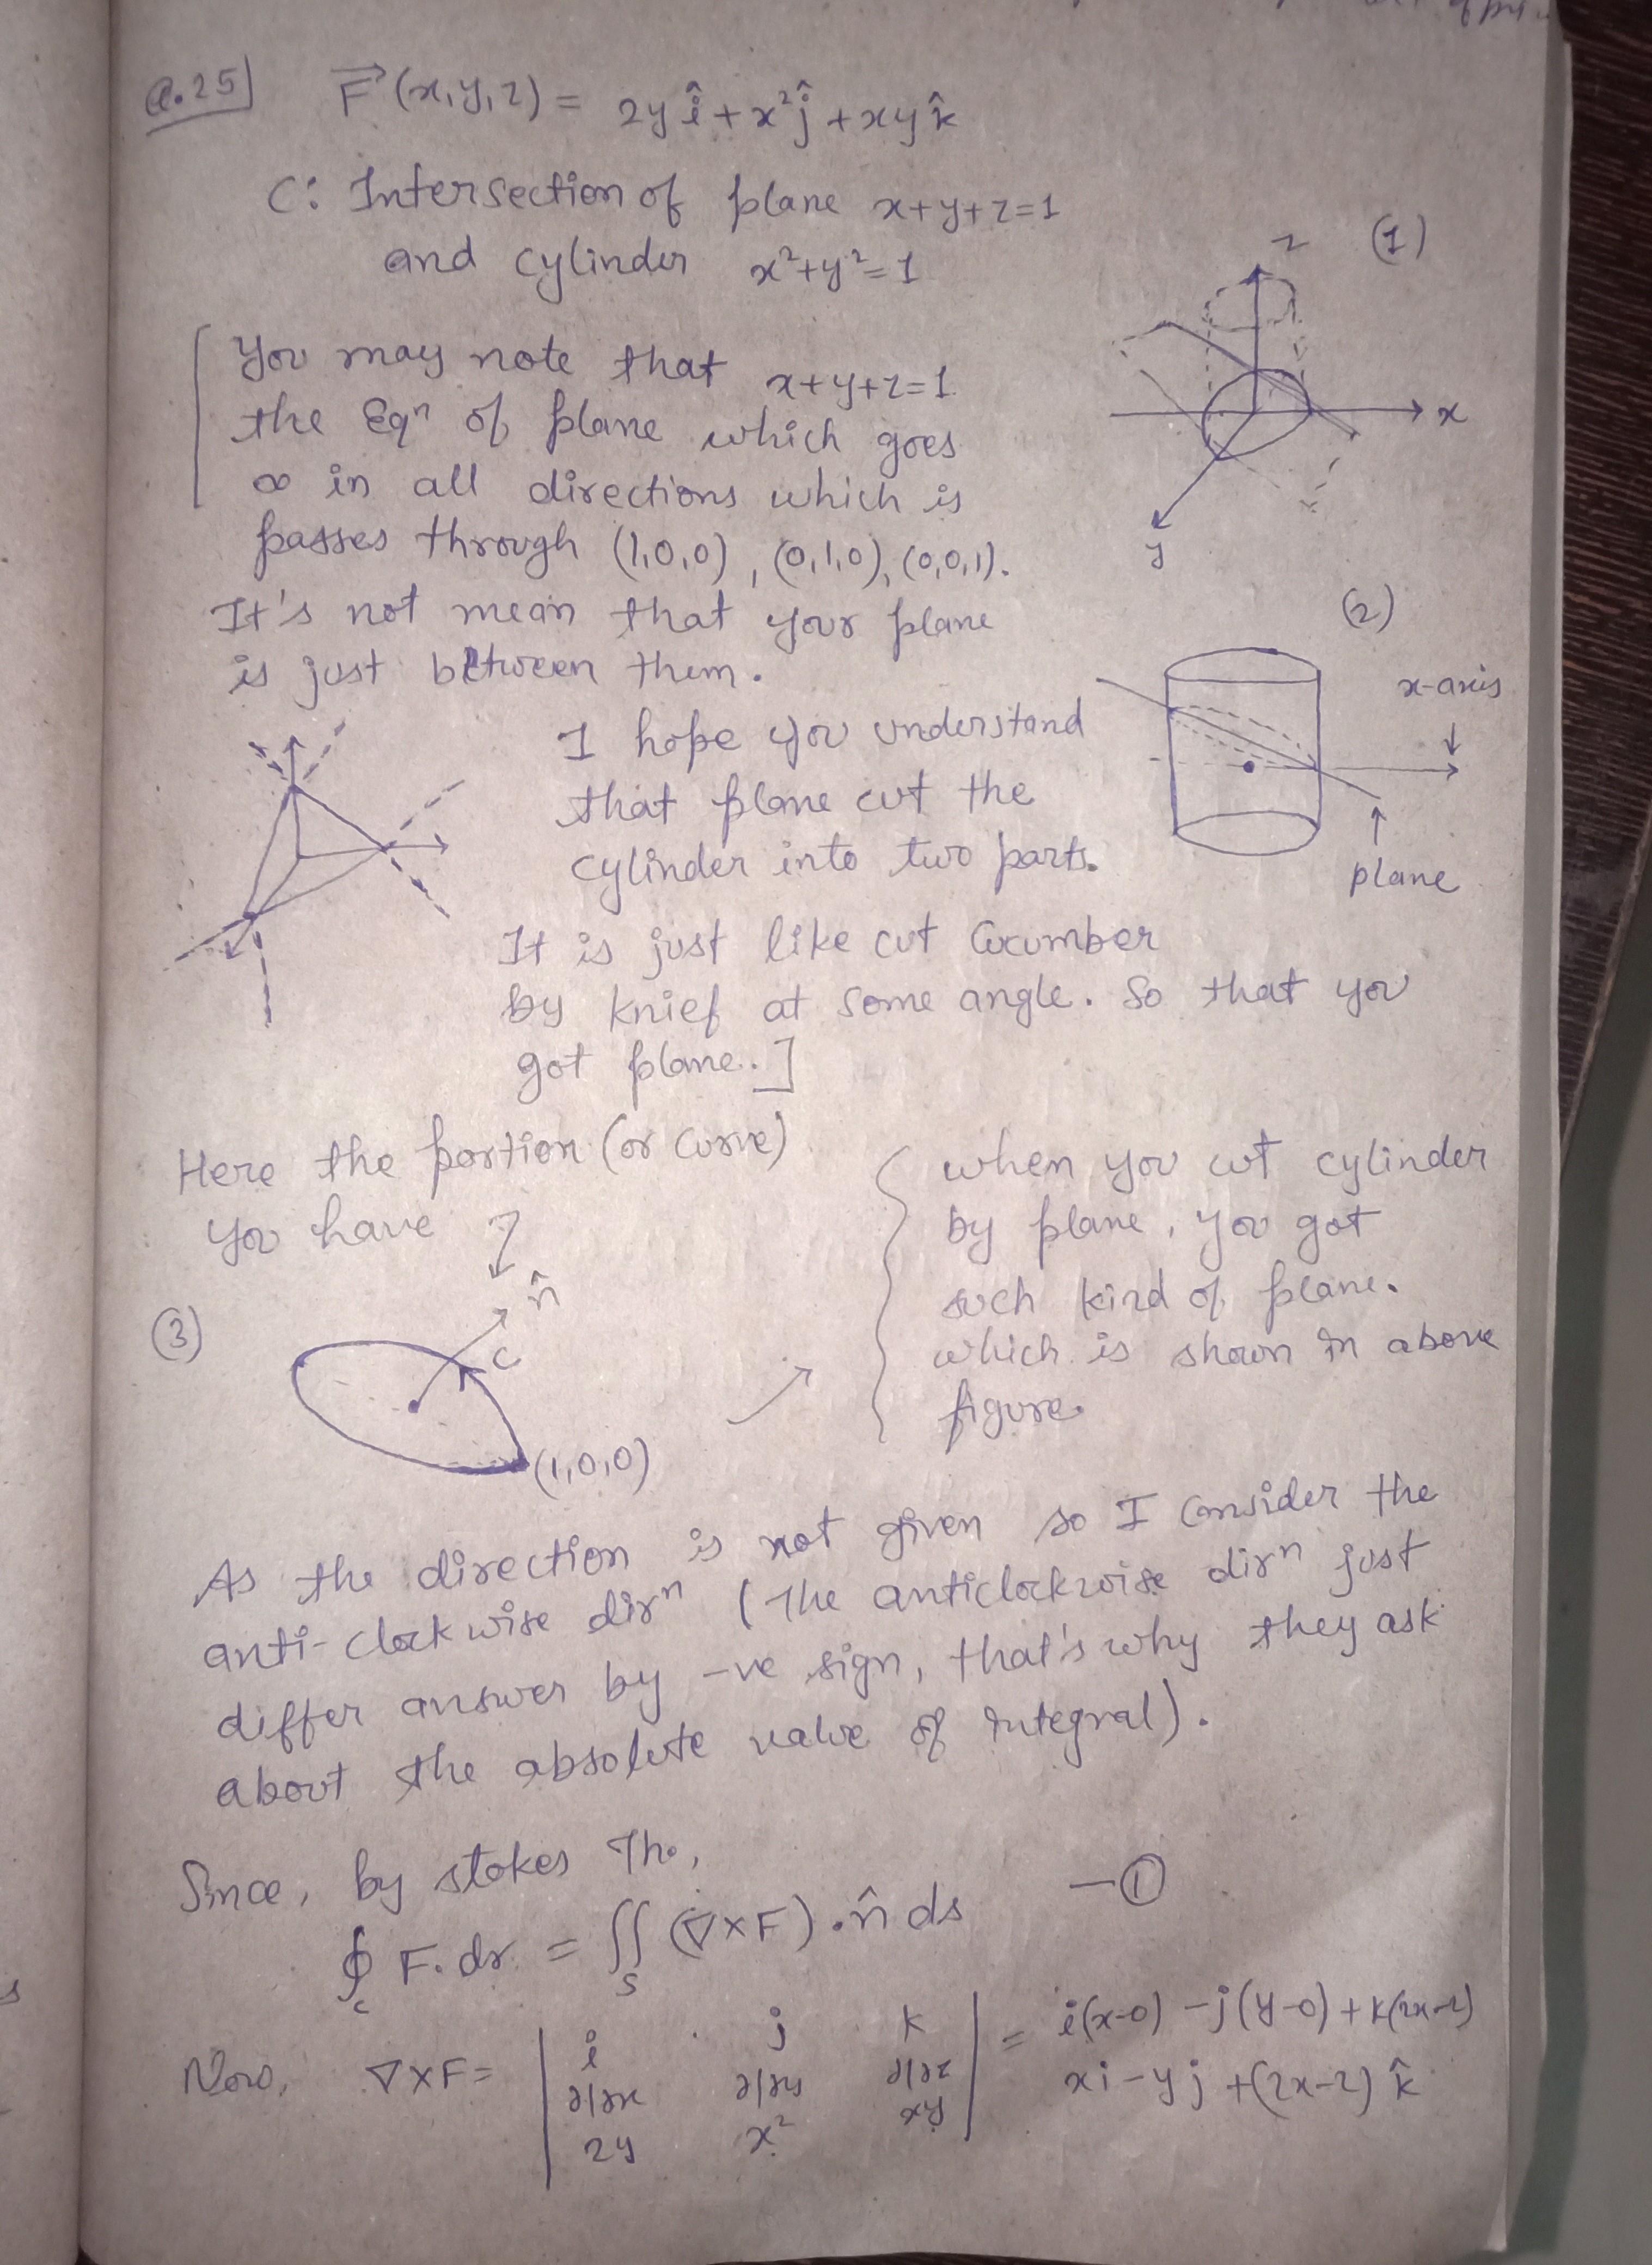 Q.25] F(x,y,z) = 2y î + x² ĵ + xy k̂
C: Intersection of plane x+y+z=1
and cylinder x²+y²=1
(1)
z
x
y
[ You may note that x+y+z=1
the Eqⁿ of plane which goes
∞ in all directions which is
passes through (1,0,0), (0,1,0), (0,0,1).
It's not mean that your plane
is just between them.
(2)
x-axis
plane
I hope you understand
that plane cut the
cylinder into two parts.
It is just like cut Cucumber
by knief at some angle. So that you
got plane..]
Here the portion (or curve)
you have
(3)
n̂
C
(1,0,0)
{ when you cut cylinder
by plane, you got
such kind of plane.
which is shown in above
figure.
As the direction is not given so I consider the
anti-clockwise dirⁿ (The anticlockwise dirⁿ just
differ answer by -ve sign, that's why they ask
about the absolute value of integral).
Since, by stokes Th.,
∮_C F.dr = ∬_S (∇×F).n̂ ds —①
Now, ∇×F = | i j k | = i(x-0) -j(y-0) + k(2x-2)
∂/∂x ∂/∂y ∂/∂z xi - yj + (2x-2) k̂
2y x² xy